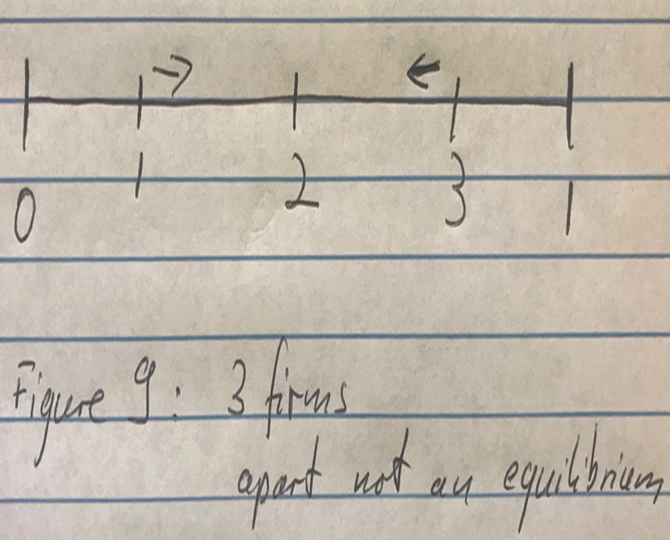 1 2 3
0 1
Figure 9: 3 firms
apart not an equilibrium